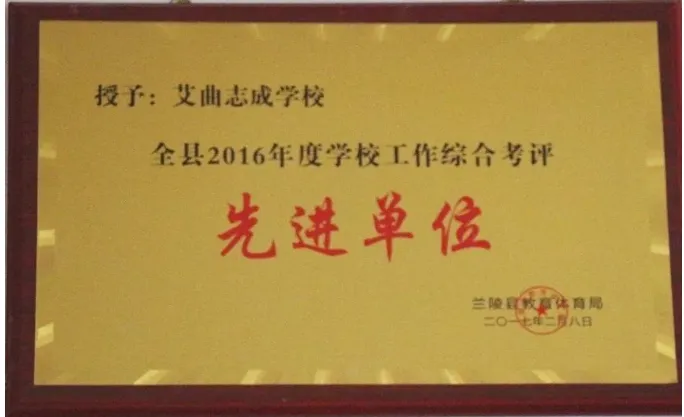 授予：艾曲志成学校
全县2016年度学校工作综合考评
先进单位
兰陵县教育体育局
二〇一七年二月八日